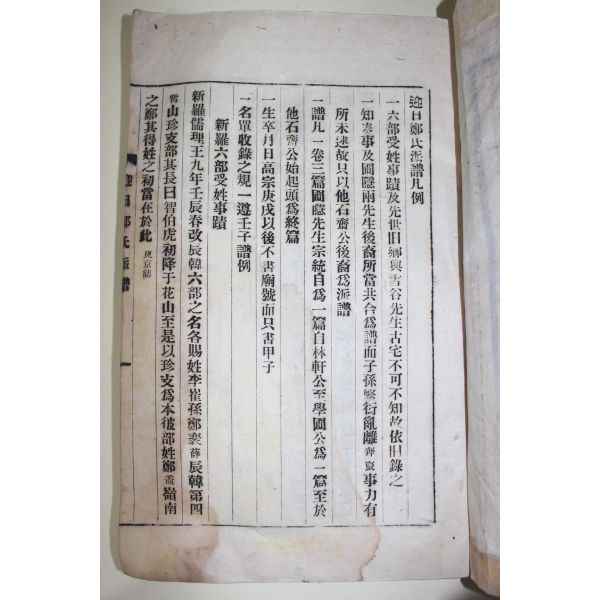 迎日鄭氏派譜凡例
一六部受姓事蹟及先世旧鄕與雪谷先生古宅不可不知故依旧錄之
一知奏事及圃隱兩先生後裔所當共合爲譜而子孫繁衍亂離奔竄事力有
所未逮故只以他石齋公後裔爲派譜
一譜凡一卷三篇圃隱先生宗統自爲一篇自林軒公至學圃公爲一篇至於
他石齋公始起頭爲終篇
一生卒月日高宗庚戌以後不書廟號而只書甲子
一名單收錄之規一遵壬子譜例
新羅六部受姓事蹟
新羅儒理王九年壬辰春改辰韓六部之名各賜姓李崔孫鄭裵薛辰韓第四
觜山珍支部其長曰智伯虎初降于花山至是以珍支爲本彼部姓鄭蓋嶺南
之鄭其得姓之初當在於此 東京誌
迎日鄭氏派譜